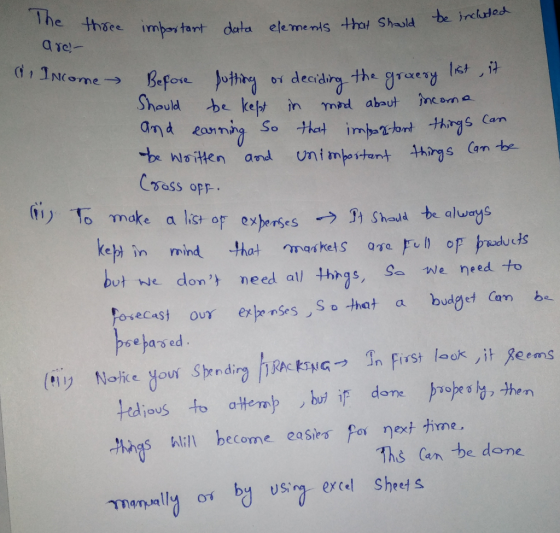 The three important data elements that should be included
are:-
(i) INcome → Before putting or deciding the grocery list, it
Should be kept in mind about income
and earning so that important things can
be written and unimportant things can be
Cross off.
(ii) To make a list of expenses → It should be always
kept in mind that markets are full of products
but we don't need all things, So we need to
forecast our expenses, So that a budget can be
prepared.
(iii) Notice your spending /TRACKING → In first look, it seems
tedious to attemp, but if done properly, then
things will become easier for next time.
This can be done
manually or by using excel sheets